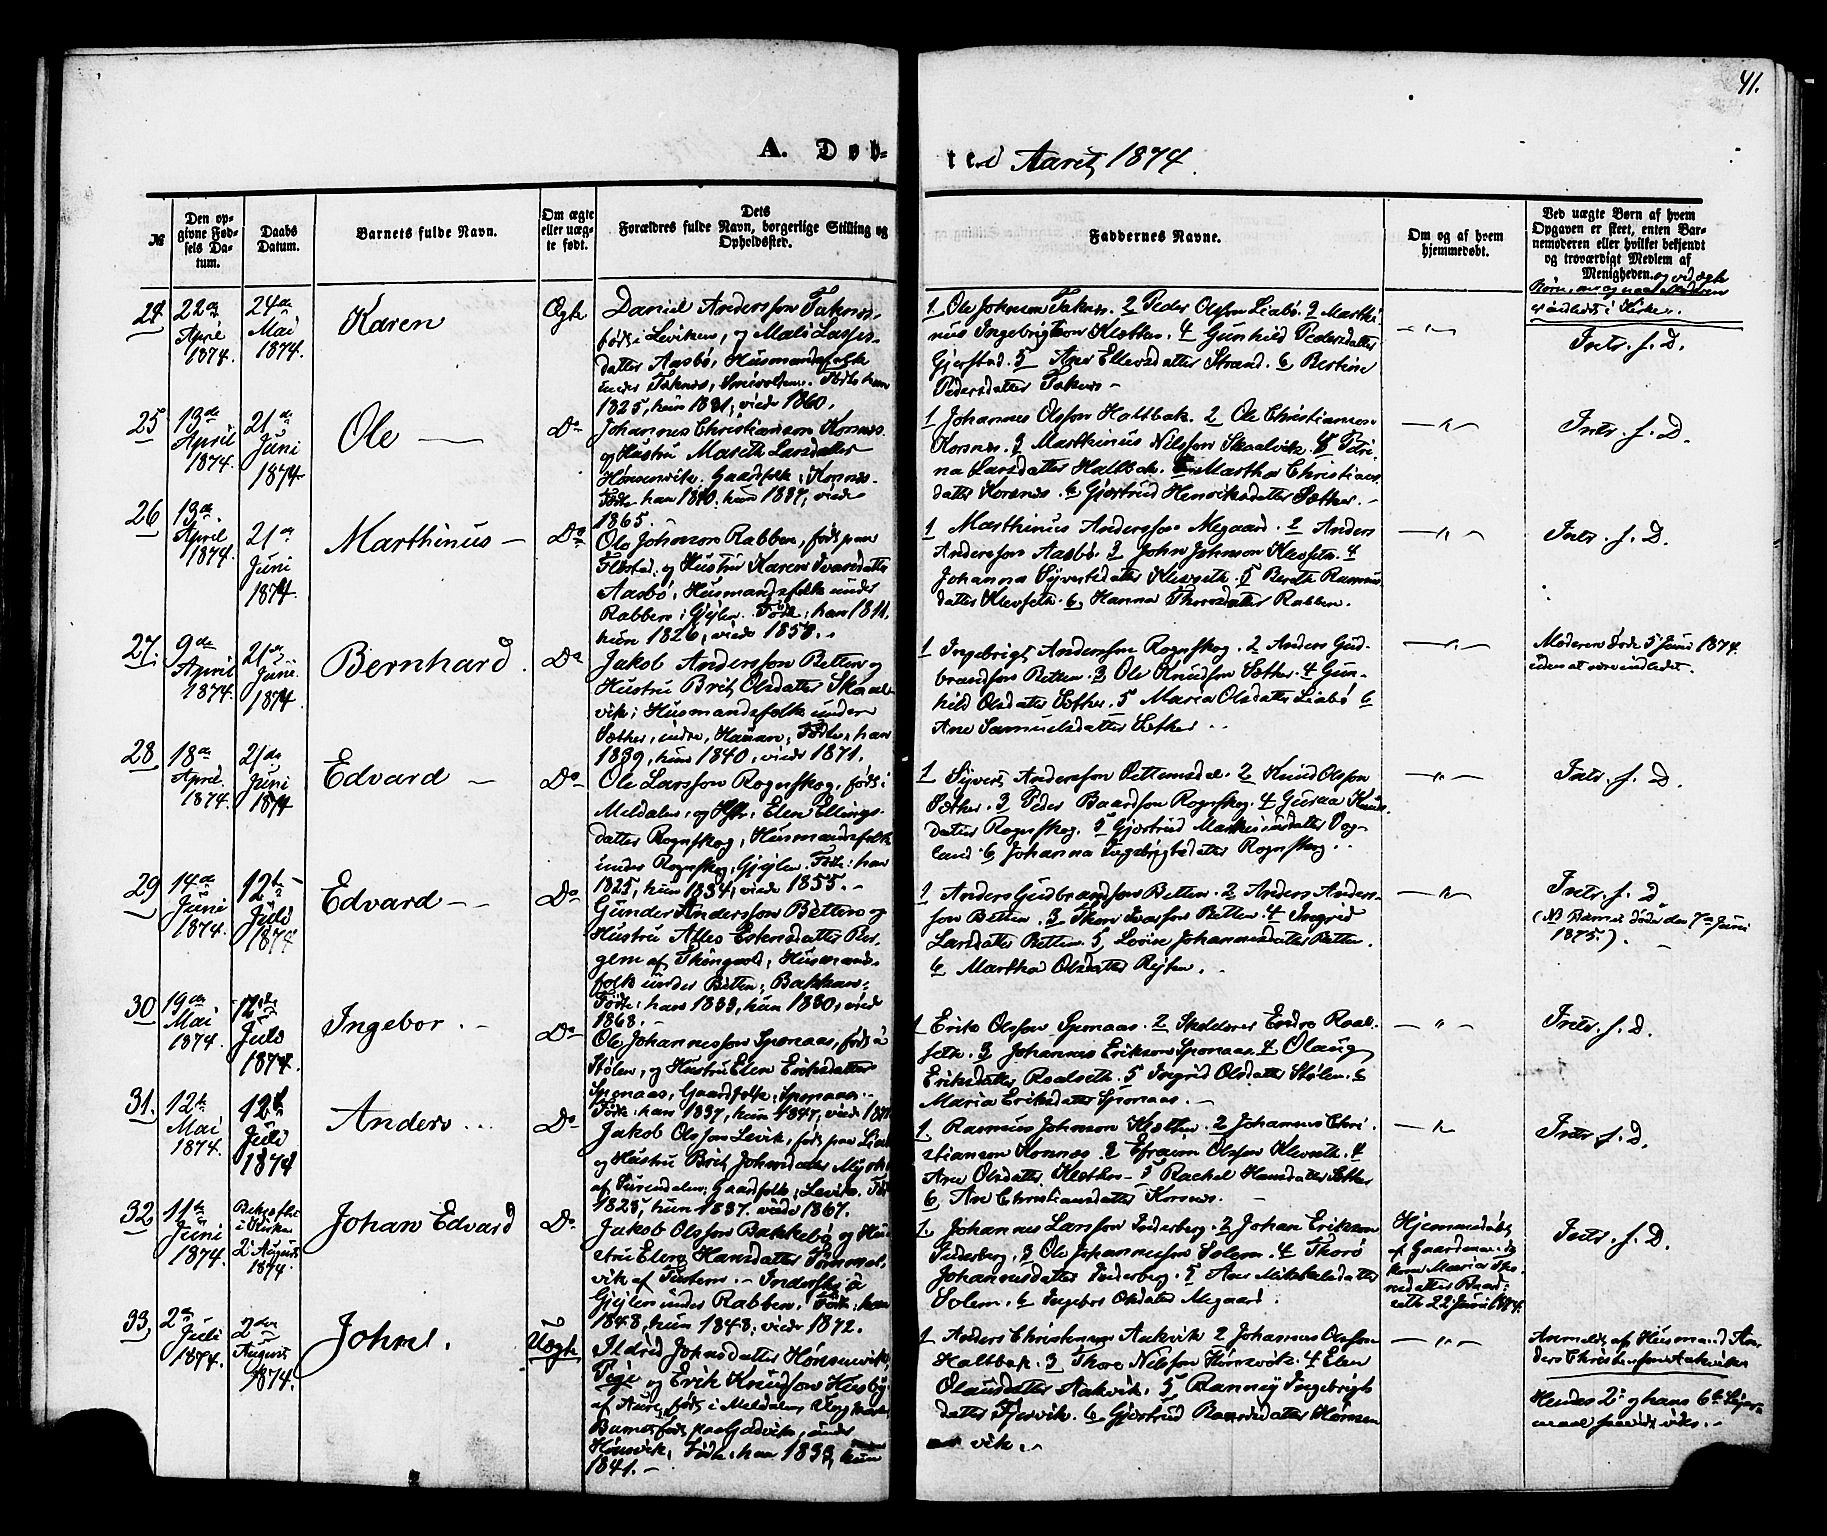 41.
A. Døb-
te i Aaret 1874.
№
Den opgivne Fødsels Datum.
Daabs Datum.
Barnets fulde Navn.
Om ægte eller uægte født.
Dets Forældres fulde Navn, borgerlige Stilling og Opholdssted.
Faddernes Navne.
Om og af hvem hjemmedøbt.
Ved uægte Børn af hvem
Opgaven er skeet, enten Bar-
nemoderen eller hvilket bekjendt
og troværdigt Medlem af
Menigheden. og ved ægte
Børn, om og naar Moderen
er indledt i Kirken.
24
22de April 1874.
24de Mai 1874.
Karen
Ægte
Daniel Andersson Taknes,
født i Leviken, og Mali Lasses-
datter Aasbø, Husmandsfolk
under Taknes, Født: han
1825, hun 1831, viede 1860.
1 Ole Johnson Taknes. 2 Peder Olsson Liabø. 3 Marthi-
nus Ingebrigtson Kletten. 4 Gunhild Pedersdatter
Gjerstad. 5 Ane Ellevsdatter Strand. 6 Bertine
Pedersdatter Taknes
Intr. f. D.
25
13de April 1874.
21de Juni 1874.
Ole
Do
Johannes Christianson Kornes
og Hustru Mareth Larsdatter
Hønsenvik. Gaardfolk i Kornes.
Født: han 1840. hun 1837, viede
1865.
1 Johannes Olsson Haltbak. 2 Ole Christianson
Korsnes. 3 Marthinus Nilsson Skaalvik. 4 Petri-
na Larsdatter Haltbak. 5 Martha Christians-
datter Korsnes. 6 Gjertrud Henriksdatter Sæther.
Intr. f. D.
26
13de April 1874.
21de Juni 1874.
Marthinus
Do
Ole Johnson Rabben, født paa
og Hustru Karen Ivarsdatter
Aasbø, Husmandsfolk under
Rabben i Gjøjlen. Født: han 1811,
hun 1826, viede 1850.
1 Marthinus Andersson Megaard. 2 Anders
Andersson Aasbø. 3 John Johnson Klevseth. 4
Johanna Syvertsdatter Klevseth. 5 Bereth Rasmus-
datter Klevseth. 6 Hanna Thoresdatter Rabben.
Intr. f. D.
27.
9de April 1874.
21de Juni 1874
Bernhard.
Do
Jakob Andersson Betten og
Hustru Brit Olsdatter Skaal-
vik; Husmandsfolk under
Sæther, indre, Født: han
1839, hun 1840, viede 1871.
1 Ingebrigt Andersson Rognskog. 2 Anders Gud-
brandson Betten. 3 Ole Knudson Sæther. 4 Gun-
hild Olsdatter Sæther. 5 Maria Olsdatter Liabø 6
Ane Samuelsdatter Sæther
Moderen døde 5 Juni 1874.
uden at være indledet.
28
18de April 1874.
21de Juni 1874
Edvard
Do
Ole Larsson Rognskog, født i
Meldalen, og Hstr: Elen Ellings-
datter Rognskog, Husmandsfolk
under Rognskog, Gjøjlen. Født: han
1825, hun 1834, viede 1855.
1 Syvert Andersson Rettensdal. 2 Knud Olsson
Sæther. 3 Peder Baardson Rognskog. 4 Guraa Knuds-
datter Rognskog. 5 Gjertrud Marthinusdatter Vag-
land. 6 Johanna Ingebrigtsdatter Rognskog.
Intr. f. D.
29
14de Juni 1874.
12te Juli 1874
Edvard
Do
Gunder Andersson Betten og
Hustru
af Thingvold, Husmands-
folk under Betten, Bakken.
Født: han 1833, hun 1830, viede
1868.
1 Anders Gudbrandson Betten. 2 Anders Anders-
son Betten. 3 Thore Ivarson Betten. 4 Ingrid
Larsdatter Betten. 5 Lovise Johannesdatter Betten.
6 Martha Olsdatter Rejten.
Intr. f. D.
(NB Barnet døde den 7de Juni
1875.).
30
19de Mai 1874.
12te Juli 1874.
Ingebor.
Do
Ole Johannesson Sponaas, født i
Stølen, og Hustru Elen Eriksdatter
Sponaas, Gaardfolk i Sponaas.
Født: han 1837, hun 1847, viede
1 Erik Olsson Sponaas. 2 Skolelærer Endre Roal-
seth. 3 Johannes Erikson Sponaas. 4 Olaug
Eriksdatter Roalseth. 5 Ingrid Olsdatter Stølen. 6
Maria Eriksdatter Sponaas.
Intr. f. D.
31.
12te Mai 1874.
12te Juli 1874
Anders
Do
Jakob Olsson Levik, født paa
og Hustru Brit Johnsdatter
af Surendalen, Gaardfolk i Levik. Født
1828, hun 1837. viede 1867.
1. Rasmus Johnson Kletten. 2 Johannes Chri-
stianson Kornes. 3 Efraim Olsson Klevseth. 4
Ane Olsdatter Kletten. 5 Rachel Hansdatter Sæther
6 Ane Christiansdatter Korsnes.
Intr. f. D.
32
11te Juni 1874.
Bekræftet i Kirken 2 August 1874.
Johan Edvard
Do
Jakob Olsson Bakkebø og Hu-
stru Elen Hansdatter Tømmer-
vik af Tustern. Inderster i
Gjøjlen under Rabben. Født: han
1848, hun 1848, viede 1872.
1. Johannes Larsson Inderberg. 2 Johan Erikson
Inderberg. 3 Ole Johannesson Solem. 4 Thorø
Johannesdatter Inderberg. 5 Ane Mikkelsdatter
Solem. 6 Ingebor Olsdatter Megaard.
Hjemmedøbt
af Gaardmands-
kone Maria
22 Juni 1874.
Intr. f. D.
33
2de Juli 1874.
2den August 1874.
John.
Uægte
Ildrid Johnsdatter Hønsenvik,
Pige og Erik Knudson Husby
af Aure, født i Meldalen, Ungmand.
Barnet født paa
Hønsvik. Født: han 1833, hun
1841.
1 Anders Christenson Aakvik 2 Johannes Olsson
Haltbak. 3 Thore Nilsson Hønsvik. 4 Elen
Olausdatter Aakvik. 5 Rannei Ingebrigts-
datter 6 Gjertrud Hønsen
vik.
Anmeldt af Husmand An-
ders Christenson Aakvik
Hendes 2det og hans 6te Lejer-
maal saavidt vides.